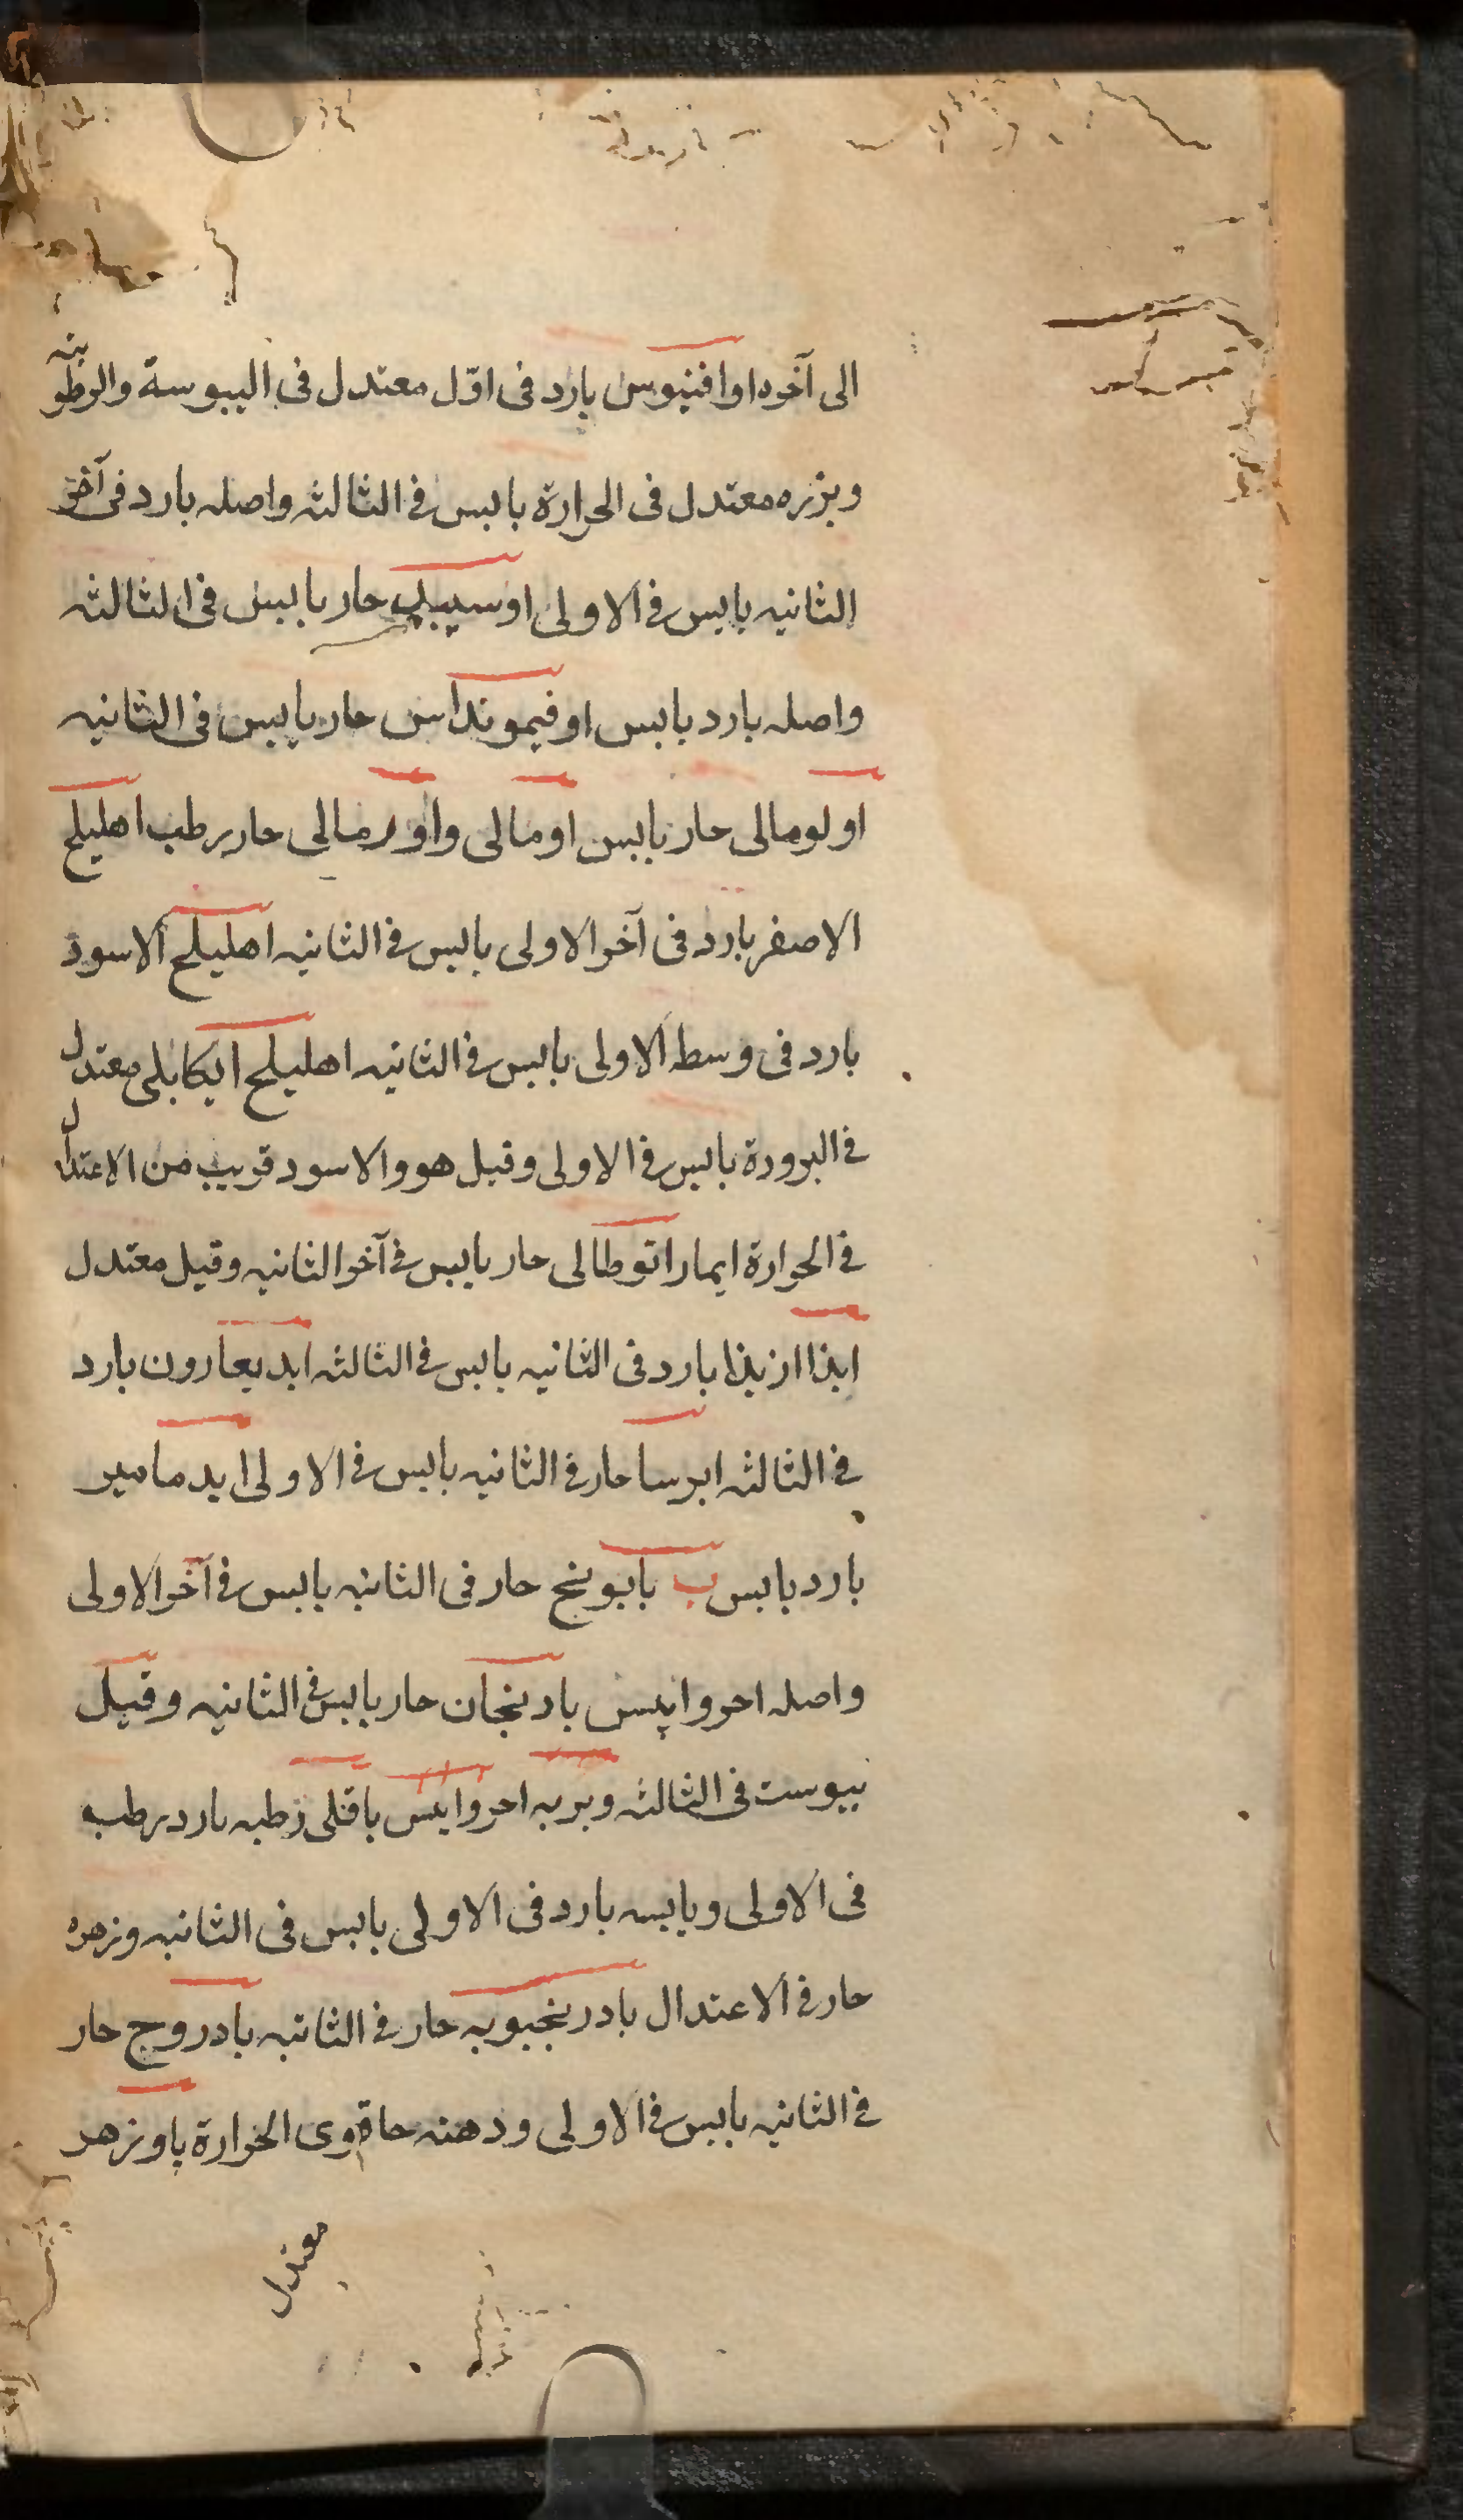 الى آخره اوافنيوس بارد فى اوّل معتدل فى اليبوسة والرطوبته
وبزره معتدل فى الحرارة يابس فى الثالثه واصله بارد فى آخر
الثانيه يابس فى الاولى اوسيبيد حار يابس فى الثالثه
واصله بارد يابس اوفيمونداس حار يابس فى الثانيه
اولومالى حار يابس اومالى واورمالى حار رطب اهليلج
الاصفر بارد فى آخر الاولى يابس فى الثانيه اهليلج الاسود
بارد فى وسط الاولى يابس فى الثانيه اهليلج الكابلى معتدل
فى البرودة يابس فى الاولى وقيل هو والاسود قريب من الاعتدال
فى الحرارة ايماراتوطالى حار يابس فى آخر الثانيه وقيل معتدل
ايذا ازيذا بارد فى الثانيه يابس فى الثالثه ايديعارون بارد
فى الثالثه ايرسا حار فى الثانيه يابس فى الاولى ايدمامير
بارد يابس ب بابونج حار فى الثانيه يابس فى آخر الاولى
واصله احروايبس بادنجان حار يابس فى الثانيه وقيل
يبوست فى الثالثه وبربه احروايبس باقلى رطبه بارد رطب
فى الاولى ويابسه بارد فى الاولى يابس فى الثانيه وزهره
حار فى الاعتدال بادرنجبويه حار فى الثانيه بادروج حار
فى الثانيه يابس فى الاولى ودهنه حار قوى الحرارة پاوزهر
معتدل